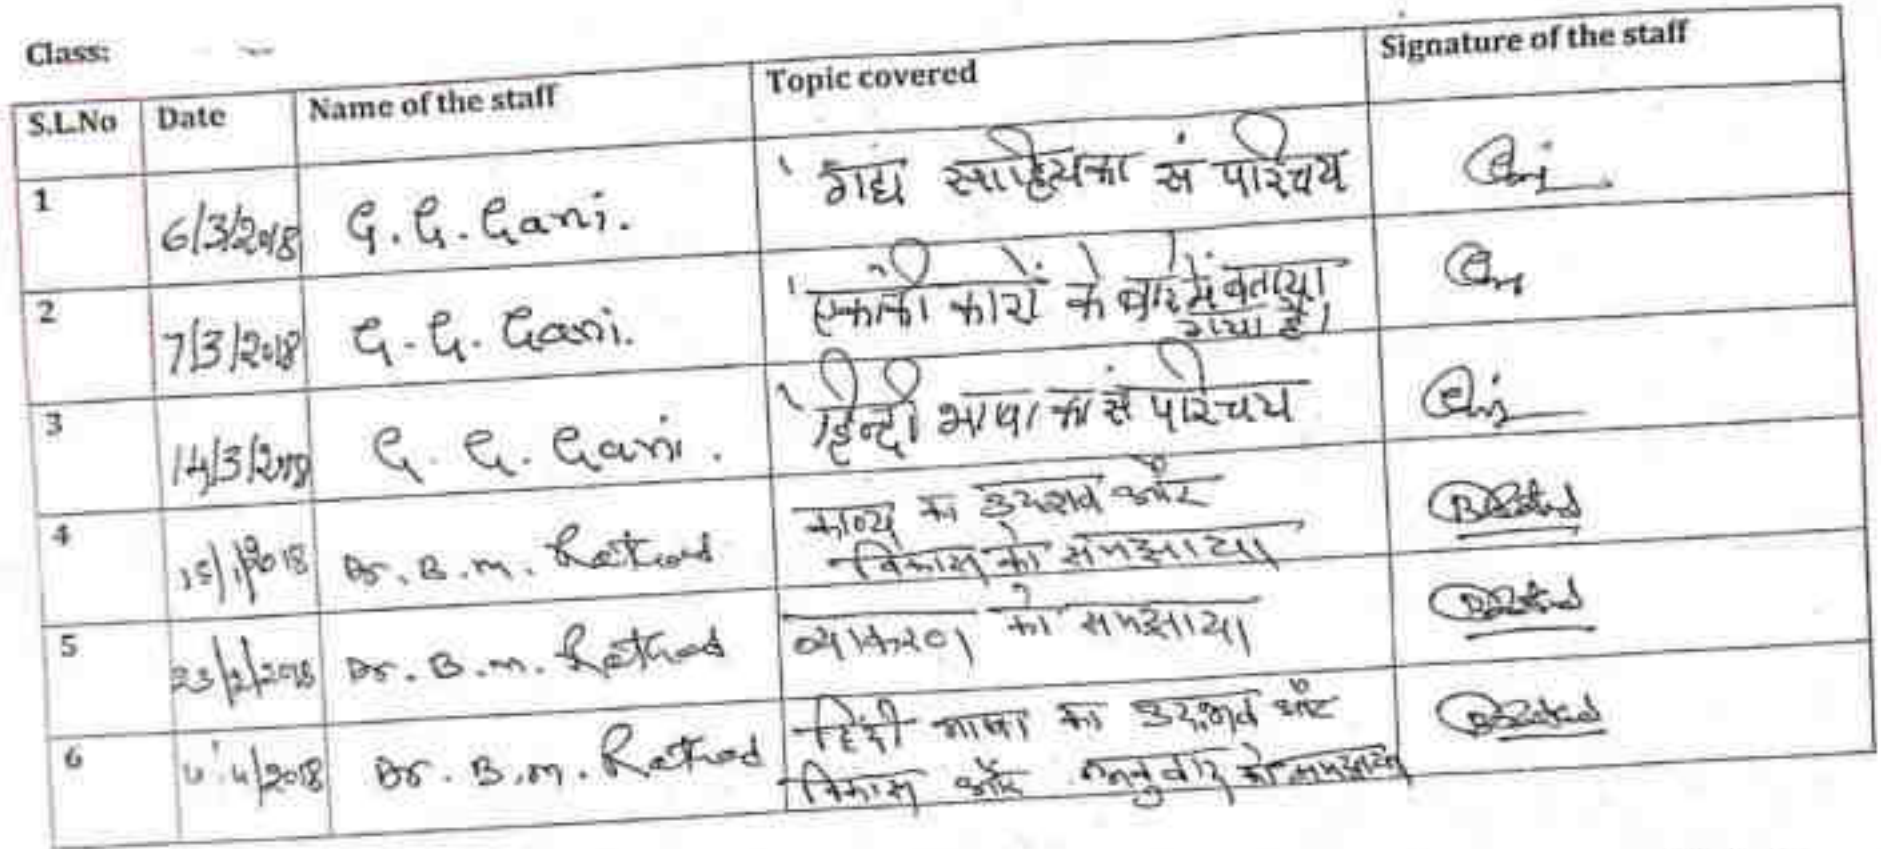 Class:
S.L.No Date Name of the staff Topic covered Signature of the staff
1 6/3/2018 G. G. Gani. गद्य साहित्यका सं परिचय
2 7/3/2018 G. G. Gani. एकांकी कारों के बारे में बताया
गया है।
3 14/3/2018 G. G. Gani. हिन्दी भाषा का सं परिचय
4 2018 Dr. B.M. Rathod काव्य का उद्भव और
विकास को समझाया
5 Dr. B.M. Rathod व्याकरण को समझाया
6 Dr. B.M. Rathod हिंदी भाषा का उद्भव और
विकास और अनुवाद को समझाया